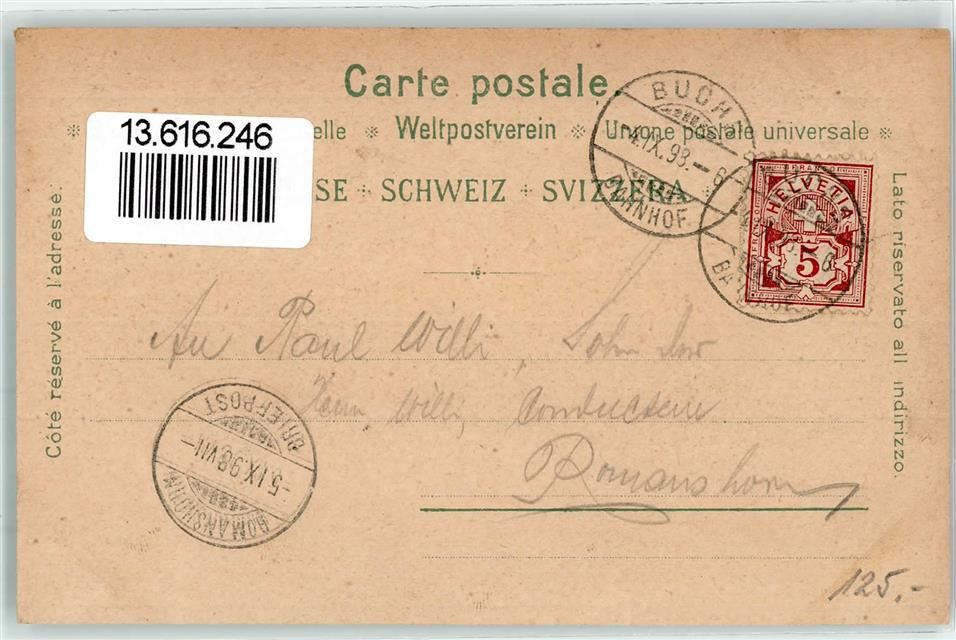 Carte postale.
13.616.246
elle * Weltpostverein * Unione postale universale *
SE + SCHWEIZ + SVIZZERA
Côte réservé à l'adresse.
Lato riservato all indirizzo.
BUCHS
4.IX.98.-6
BAHNHOF
FRANCO
HELVETIA
5
An Paul Willi, Sohn des
Herrn Willi, Conducteur
Romanshorn
BRIEFPOST
-5.IX.98.VII-
ROMANSHORN
125.-